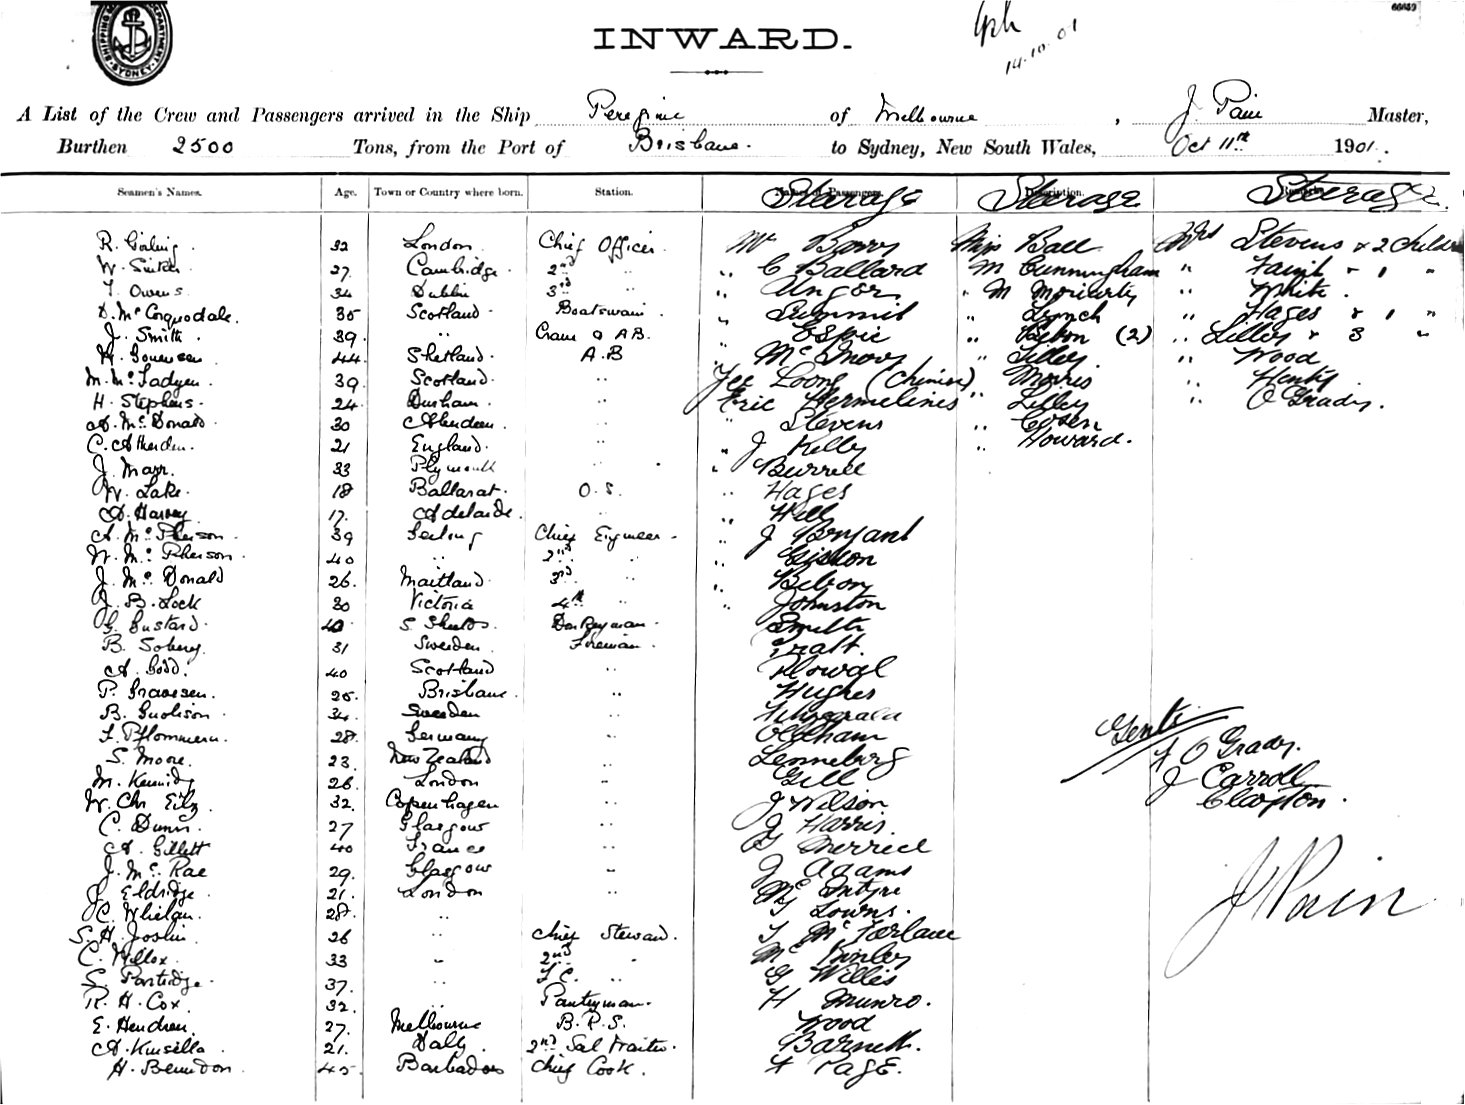 SHIPPING DEPARTMENT SYDNEY
14.10.01
INWARD.
A List of the Crew and Passengers arrived in the Ship Peregrine of Melbourne, J. Pain Master,
Burthen 2500 Tons, from the Port of Brisbane. to Sydney, New South Wales, Oct 11th 1901.
Seamen's Names. Age. Town or Country where born. Station. Steerage Steerage Steerage
R. Girling. 32 London. Chief Officer Mr Barry Miss Ball Mrs Stevens & 2 Children
W. 27. Cambridge. 2nd " " C Ballard M Cunningham " & 1 "
T. Owens 34 Dublin 3rd " " Angor " M Moriarty " White.
D. Mc Corquodale. 35 Scotland. Boatswain. " Summit " Lynch " Hages & 1 "
J. Smith 39. " & AB. " Espie " (2) " Lilley & 3 "
H. 44. Shetland. A.B " " Lilley " Wood
M. Mc Fadyen. 39. Scotland. " Yee Loong (Chinese) " Morris " Henty
H. Stephens. 24. Durham. " Eric Hermelines " Lilley " O Grady.
A. Mc Donald. 30 Aberdeen. " " Stevens "
C. Atherden. 21 England. " " J Kelly " Howard.
J. Marr. 33 Plymouth " " Burrell
W. Lake. 18 Ballarat. O.S. " Hages
A. Harvey 17. Adelaide. " " Hill
A. Mc Pherson. 39 Chief Engineer. " J Bryant
W. Mc Pherson. 40 " 2nd " "
J. Mc Donald 26. Maitland. 3rd " "
J. B. Lock 30 Victoria 4th " " Johnston
G. Bustard. 40 S. Shields. Donkeyman. Smith
B. 31 Sweden. Fireman. Pratt.
A. Todd. 40 Scotland "
P. 25. Brisbane. " Hughes
B. 34. Sweden " Fitzgerald
28. Germany " Oldham
S. Moore. 23. New Zealand " Lenneberg
M. Kennedy 26. London " Gill
W. Chr 32. Copenhagen " J Wilson
C. Dunn. 27 Glasgow " J Harris.
A. Gillett 40 France " G Merrell
J. Mc Rae 29. Glasgow " J Adams
J. Eldridge 21. London " Mc Intyre
C. Whelan. 28. " T Lowns.
S. H. Joslin. 26 " Chief Steward. T Mc Farlane
C. Willox 33 " 2nd " Mc Kinley
S. Partridge. 37. " F.C. " G Willis
R. H. Cox 32. " Pantryman. H Munro.
E. Hendren. 27. Melbourne B.R.S. Wood
A. Kinsella. 21. Dalby. 2nd Sal Waiter. Barnett.
H. 45. Barbados Chief Cook. F Page.
Gents
F O Grady.
J Carroll
Clayton.
J Pain